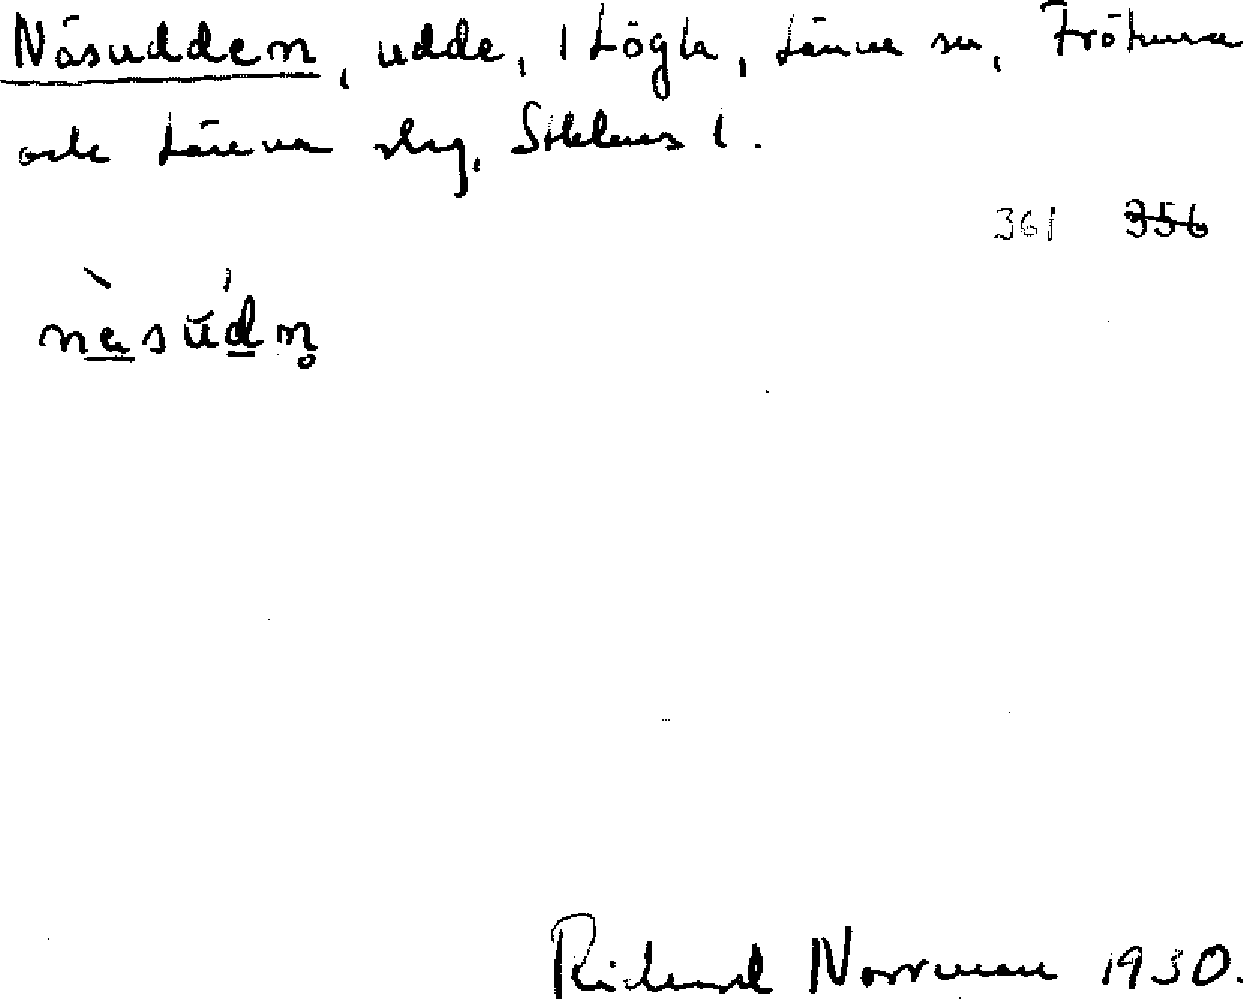 Näsudden, udde, i Lögla, Länna sn, Frötuna
och Länna slg, Sthlms l.
361 356
nàsúdn̥
Richard Norrman 1930.